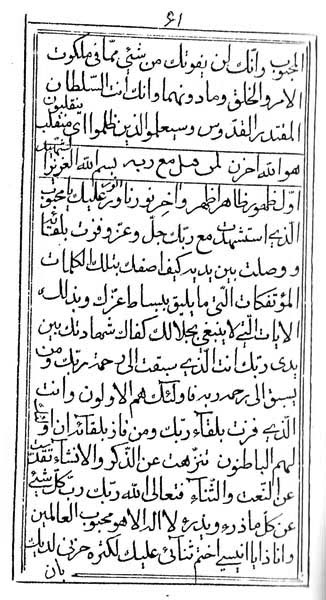 ٦١
المحبوب وانّك لن يفوتك من شئ ممّا في ملكوت
الامر و الخلق و ما دونهما و انك انت السّلطان
المقتدر القدّوس و سيعلموا الذين ظلموا ايّ منقلب ينقلبون
هو الله احزن لمن قتل مع ربه بسم الله العزيز الشهيد
اوّل ظهور ظاهر اظهر و اخر نور ناور انور عليك يا محبوب
الّذي استشهدت مع ربّك جلّ و عزّ و فزت بلقائه
و وصلت بين يديه كيف اصفك بتلك الكلمات
المؤتفكات الّتي ما يليق ببساط عزّك و بذلك
الايات الّتي لا ينبغي بجلالك كفاك شهادتك بين
يدي ربّك انت الّذي سبقت الى رحمة ربّك و من
يسبق الى رحمة ربه فاولئك هم الاولون و انت
الّذي فزت بلقاء ربّك و من فاز بلقائه ان
لهم الباطنون تنزّهت عن الذّكر و الانشاء تقدّست
عن النّعت و الثّناء فتعالى الله ربّك ربّ كلّ شئ
عن كلّ ما ذرء و يذرء لا اله الا هو محبوب العالمين
و انا ذا يا انيسي اختم ثنائي عليك لكثرة حزني لديك
بان